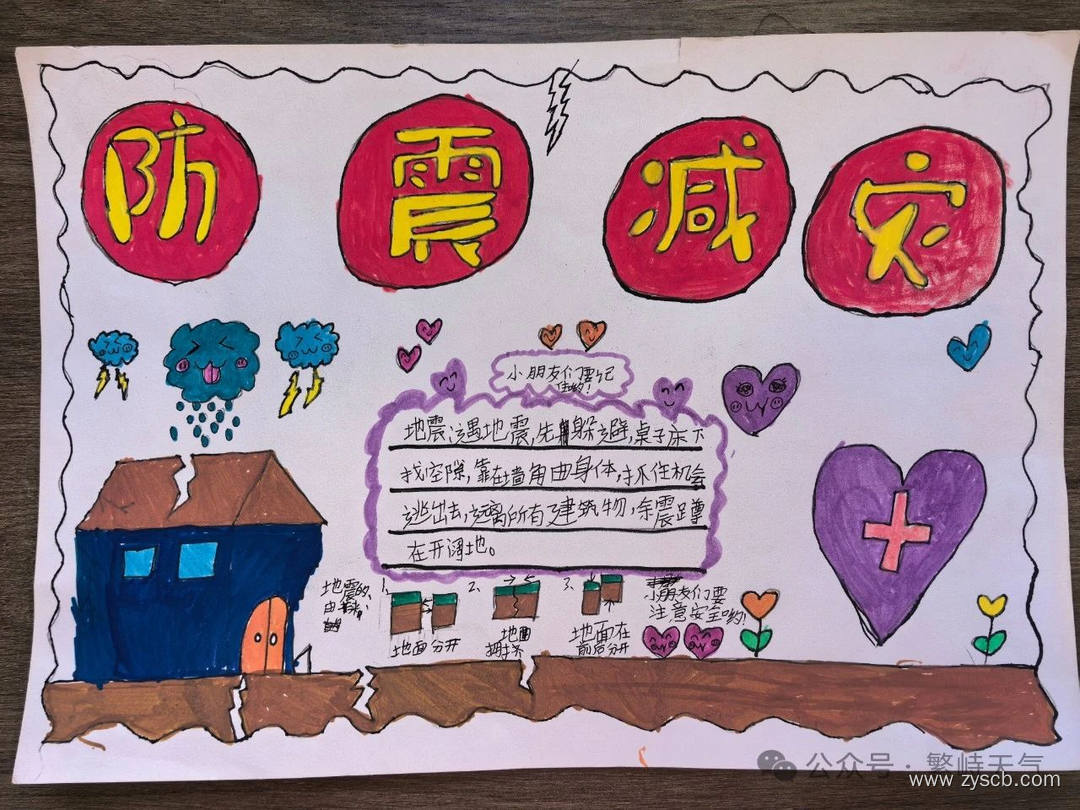 防震减灾
小朋友们要记
住哟!
地震:遇地震,先躲避,桌子床下
找空隙,靠在墙角曲身体,抓住机会
逃出去,远离所有建筑物,余震蹲
在开阔地。
地震的
由来:
1、
地面分开
2、
地面
拥挤
3、
地面在
前后分开
小朋友们要
注意安全哟!
公众号·繁峙天气
www.zyscb.com